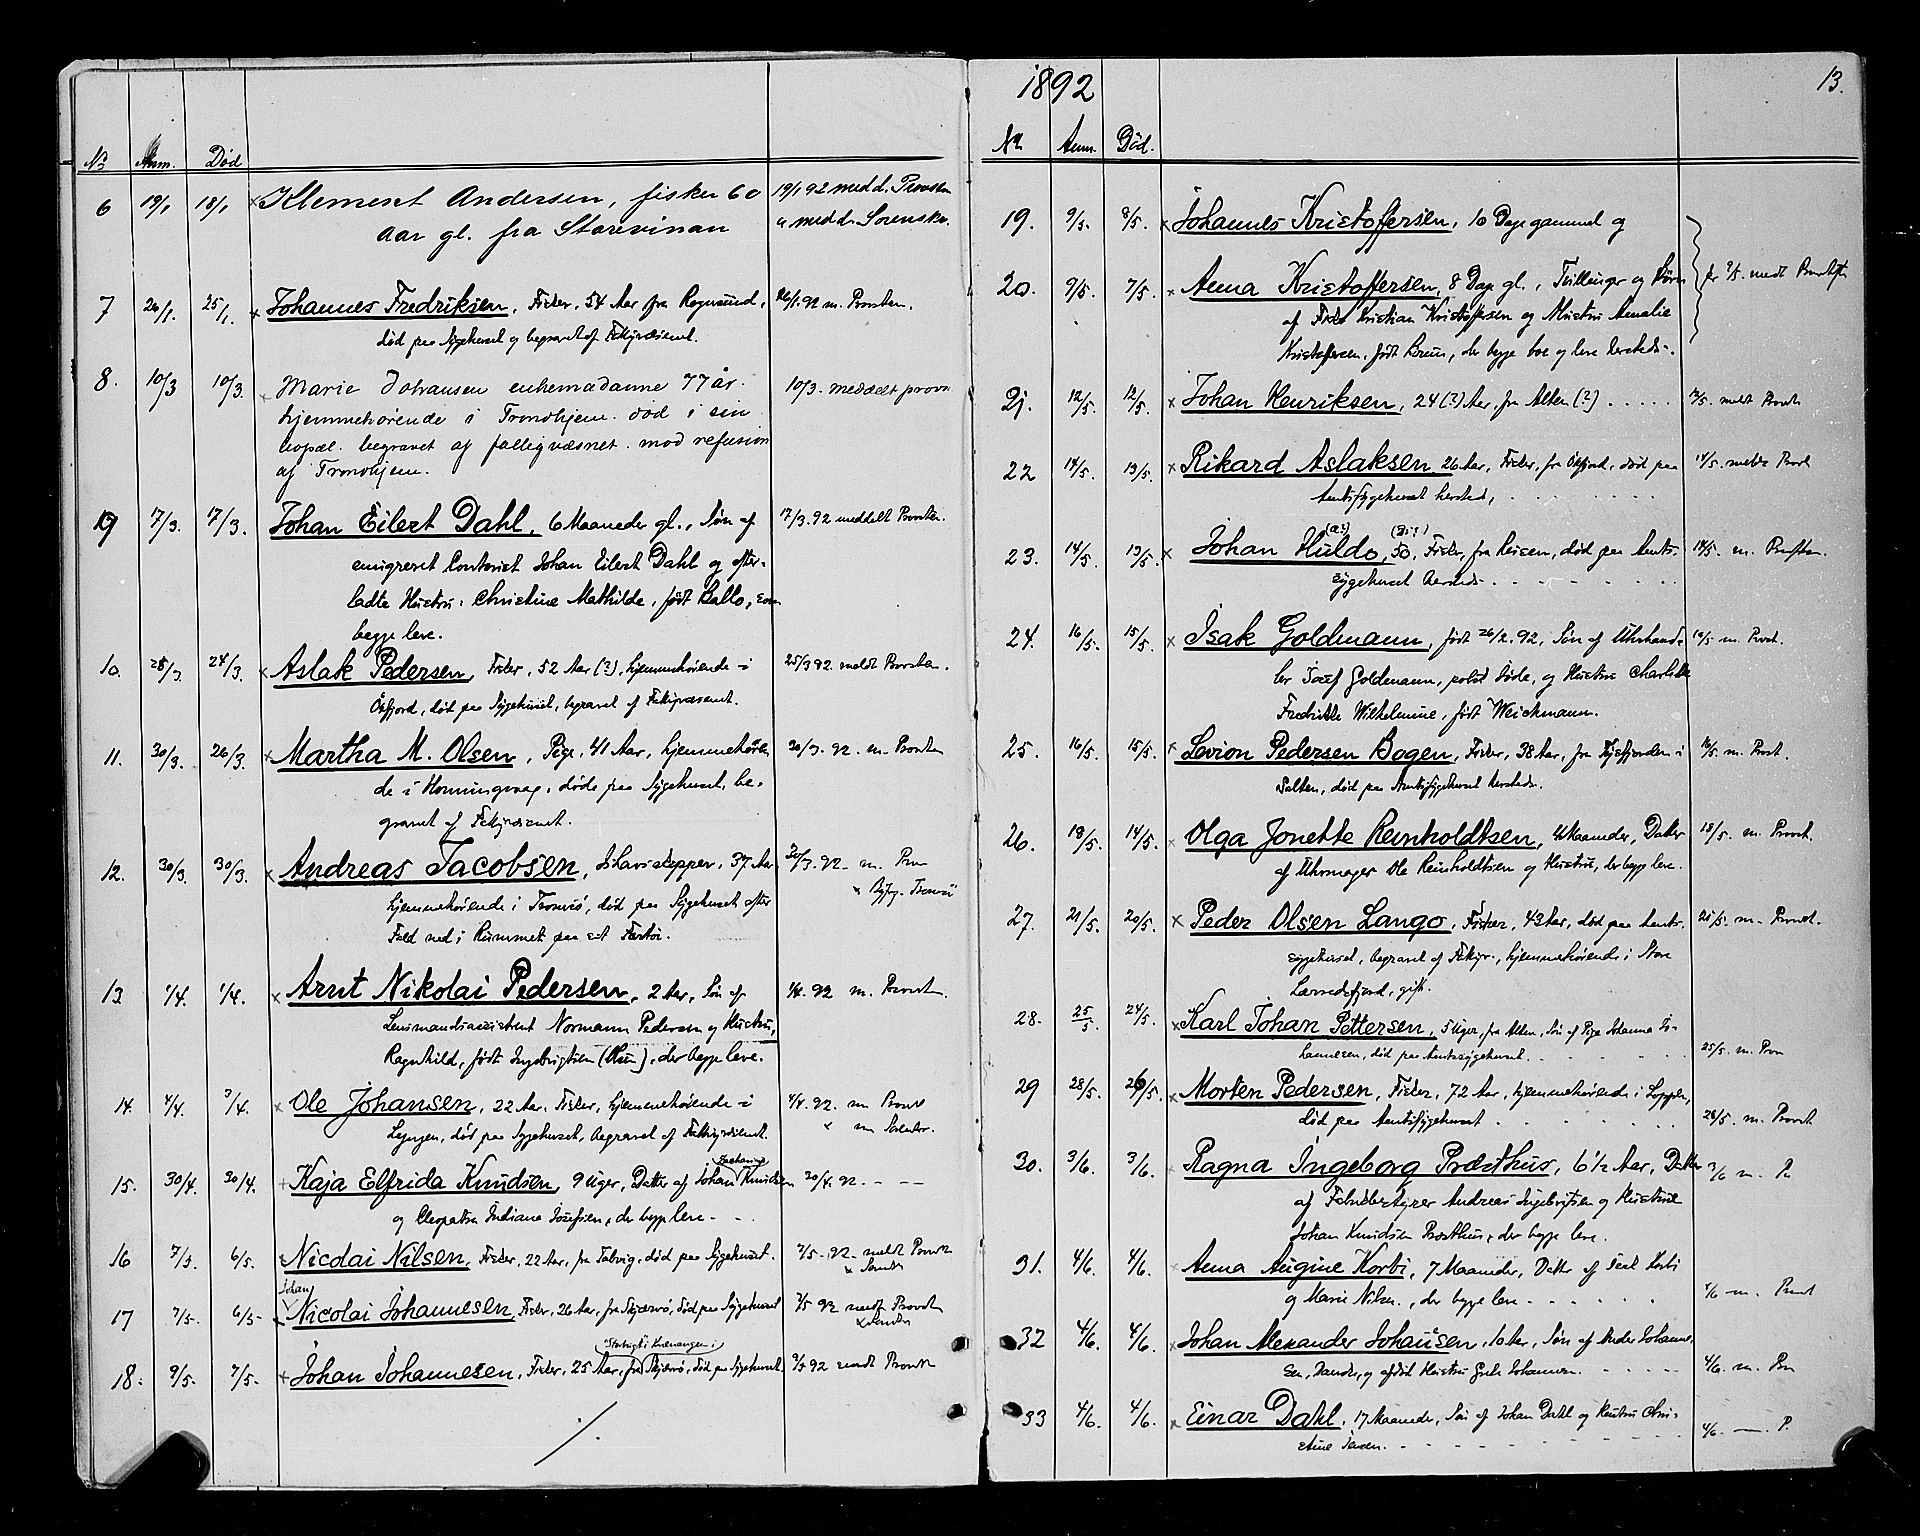 No Anm. Død
6 19/1 18/1 Klement Andersen, fisker 60 19/1 92 medd. Provsten
aar gl. fra Storevinan " medd. Sorenskr.
7 26/1. 25/1. Johannes Fredriksen, Fisker, 54 Aar fra Rognsund, 26/1. 92 m. Provsten.
død paa Sygehuset og begravet af Fattigvæsenet.
8. 10/3 10/3. Marie Johansen enkemadame 77 år. 10/3. meddelt provst
hjemmehørende i Trondhjem. død i sin
bopæl. begravet af fattigvæsnet. mod refusion
af Trondhjem.
9 17/3. 17/3. Johan Eilert Dahl, 6 Maaneder gl., Søn af 17/3. 92 meddelt Provsten.
emigreret Contorist Johan Eilert Dahl og efter-
ladte Hustru: Christine Mathilde, født Ballo, som
begge leve.
10. 25/3. 24/3. Aslak Pedersen, Fisker, 52 Aar (?), hjemmehørende i 25/3 92 meldt Provsten.
Øxfjord, død paa Sygehuset, begravet af Fattigvæsenet.
11. 30/3. 26/3. Martha M. Olsen, Pige, 41 Aar, hjemmehøren- 30/3. 92. m. Provsten
de i Honningvaag, døde paa Sygehuset, be-
gravet af Fattigvæsenet.
12. 30/3. 30/3. Andreas Jacobsen, 37 Aar 30/3. 92. m. Prov
hjemmehørende i Tromsø, død paa Sygehuset efter " Byfog. Tromsø
Fald ned i Rummet paa et Fartøi.
13 1/4. 1/4. Arnt Nikolai Pedersen, 2 Aar, Søn af 1/4. 92 m. Provsten.
Lensmandsassistent Normann Pedersen og Hustru,
Ragnhild, født Ingebrigtsen, der begge leve.
14. 4/4. 3/4. Ole Johansen, 22 Aar. Fisker, hjemmehørende i 4/4. 92. m. Provst
Lyngen, død paa Sygehuset, begravet af Fattigvæsenet. " m.
Zacharias
15. 30/4. 30/4. Kaja Elfrida Knudsen, 9 Uger, Datter af Johan Knudsen 30/4. 92. — —
og Cleopatra Indiana Josefsen, der begge leve - . .
16 7/5. 6/5. Nicolai Nilsen, Fisker, 22 Aar, fra Talvig, død paa Sygehuset. 7/5. 92. meldt Provst
Johan
17 7/5. 6/5. Nicolai Johannesen, Fisker, 26 Aar, fra Skjærvø, død paa Sygehuset 7/5 92 meldt Provst
i Kvænangen
18. 9/5. 7/5. Johan Johannesen, Fisker, 25 Aar, fra Skjærvø, død paa Sygehuset 9/5 92 meldt Provst
./.
1892 13.
No Anm. Død.
19. 9/5. 8/5. Johannes Kristoffersen, 10 Dage gammel og
20. 9/5. 7/5. Anna Kristoffersen, 8 Dage gl., Tvillinger og Børn 9/5. medt
af Fisker Kristian Kristoffersen og Hustru Amalie
Kristoffersen, født Bruun, der begge bor og leve hersteds.
21. 12/5. 12/5. Johan Henriksen, 24 (?) Aar, fra Alten (?) . . . . . 12/5. meldt Provst
22 14/5. 13/5. Rikard Aslaksen 26 Aar, Fisker, fra Øxfjord, død paa 14/5. meldt Provst
Amtssygehuset hersteds, . . . . . . .
(a?) (51?)
23. 14/5. 13/5. Johan Huldo, 50, Fisker, fra Reisen, død paa Amts- 14/5. m. Provsten.
sygehuset hersteds . . . . . . . .
24. 16/5. 15/5. Isak Goldmann, født 26/2. 92, Søn af Uhrhand- 16/5. m. Provst.
ler Josef Goldmann, polsk Jøde, og Hustru Charlotte
Fredrikke Wilhelmine, født Weichmann.
25. 16/5. 15/5. Lavion Pedersen Bogen, Fisker, 38 Aar, fra Tysfjorden i 16/5. m. Provst.
Salten, død paa Amtssygehuset hersteds.
26. 18/5. 14/5. Olga Jonette Reinholdtsen, 4 Maaneder, Datter 18/5. m. Provst.
af Uhrmager Ole Reinholdtsen og Hustru, der begge leve.
27. 21/5. 20/5. Peder Olsen Lango, Fisker, 43 Aar, død paa Amts- 21/5. m. Provst.
sygehuset, begravet af Fattigv., hjemmehørende i Store
Lerresfjord, gift.
28. 25/5 24/5. Karl Johan Pettersen, 5 Uger, fra Alten, Søn af Pige Johanna Jo-
hannesen, død paa Amtssygehuset . . . . . 25/5. m. Prov
29 28/5. 26/5. Morten Pedersen, Fisker, 72 Aar, hjemmehørende i Loppen,
død paa Amtssygehuset . . . . . . . 28/5. m. Provst
30. 3/6. 3/6. Ragna Ingeborg Præsthus, 6 1/2 Aar, Datter 3/6 m. P.
af Fabrikbestyrer Andreas Ingebrigtsen og Hustru
Johan Knudsen Præsthus, der begge leve.
31. 4/6. 4/6. Anna Augine Korbi, 7 Maaneder, Datter af Korbi
og Marie Nilsen, der begge leve . . . . . 4/6 m. Provst
32 4/6. 4/6. Johan Alexander Johansen, 10 Aar, Søn af Peder Johanne-
sen, og afdød Hustru Johannesen. . . . . 4/6. m. Prov
33 4/6. 4/6. Einar Dahl, 17 Maaneder, Søn af Johan Dahl og Hustru Chri-
stine . . . . . . . 4/6. — P.